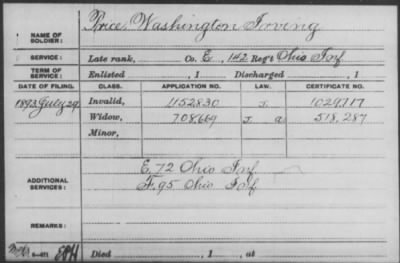 Price, Washington Irving
NAME OF SOLDIER:
SERVICE: Late rank, Co. E, 142 Reg't Ohio Inf.
TERM OF SERVICE: Enlisted , 1 Discharged , 1
DATE OF FILING. CLASS. APPLICATION NO. LAW. CERTIFICATE NO.
1893 July 29 Invalid, 1152830 J. 1029717
Widow, 708669 J. a 518,287
Minor,
E, 72 Ohio Inf.
ADDITIONAL SERVICES:
F, 95 Ohio Inf
REMARKS:
6-411
Died , 1 , at